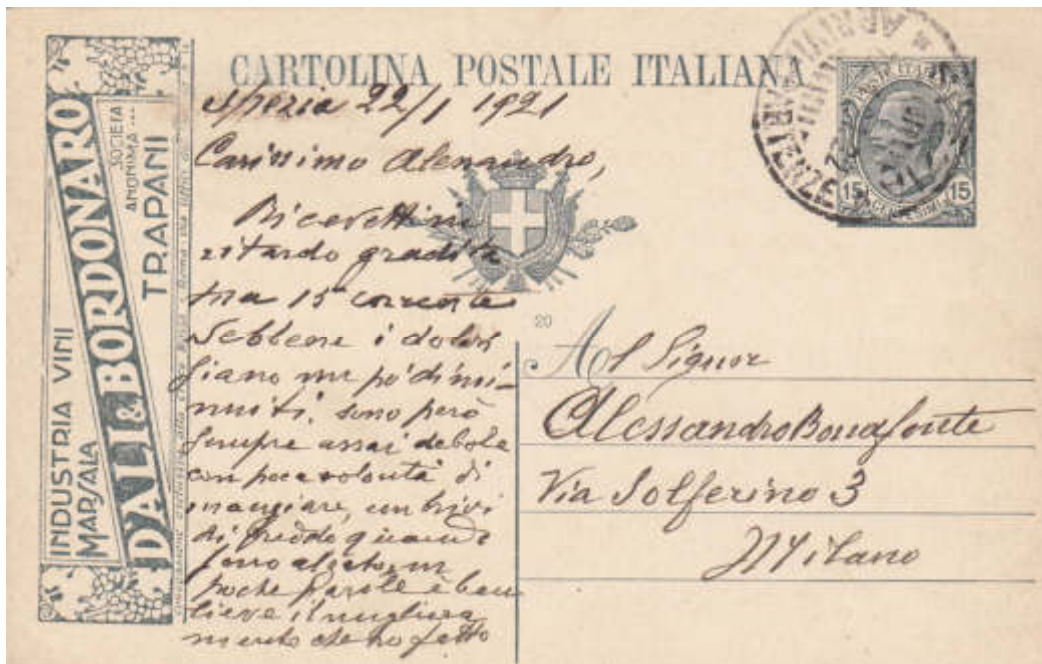 CARTOLINA POSTALE ITALIANA
INDUSTRIA VINI
MARSALA
DALI & BORDONARO
SOCIETA
ANONIMA
TRAPANI
15 15
Spezia 22/1 1921
Carissimo Alessandro,
Ricevetti in
ritardo gradita
tua 15 corrente
Sebbene i dolori
siano un po' dimi-
nuiti, sono però
sempre assai debole
con poca volontà di
mangiare, con brividi
di freddo quando
sono alzato, in
poche parole è ben
lieve il migliora
mento che ho fatto
20
Al Signor
Alessandro Bonafonte
Via Solferino 3
Milano